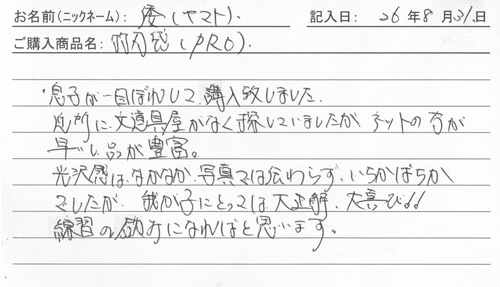 お名前(ニックネーム): 倭(ヤマト). 記入日: 26年8月31日
ご購入商品名: 竹刀袋(PRO).
・息子が一目ぼれして、購入致しました.
近所に、武道具屋がなく探していましたが ネットの方が
早いし品が豊富。
光沢感は、なかなか、写真では伝わらず、いちかばちか
でしたが、我が子にとっては、大正解、大喜び!!
練習の励みになればと思います。